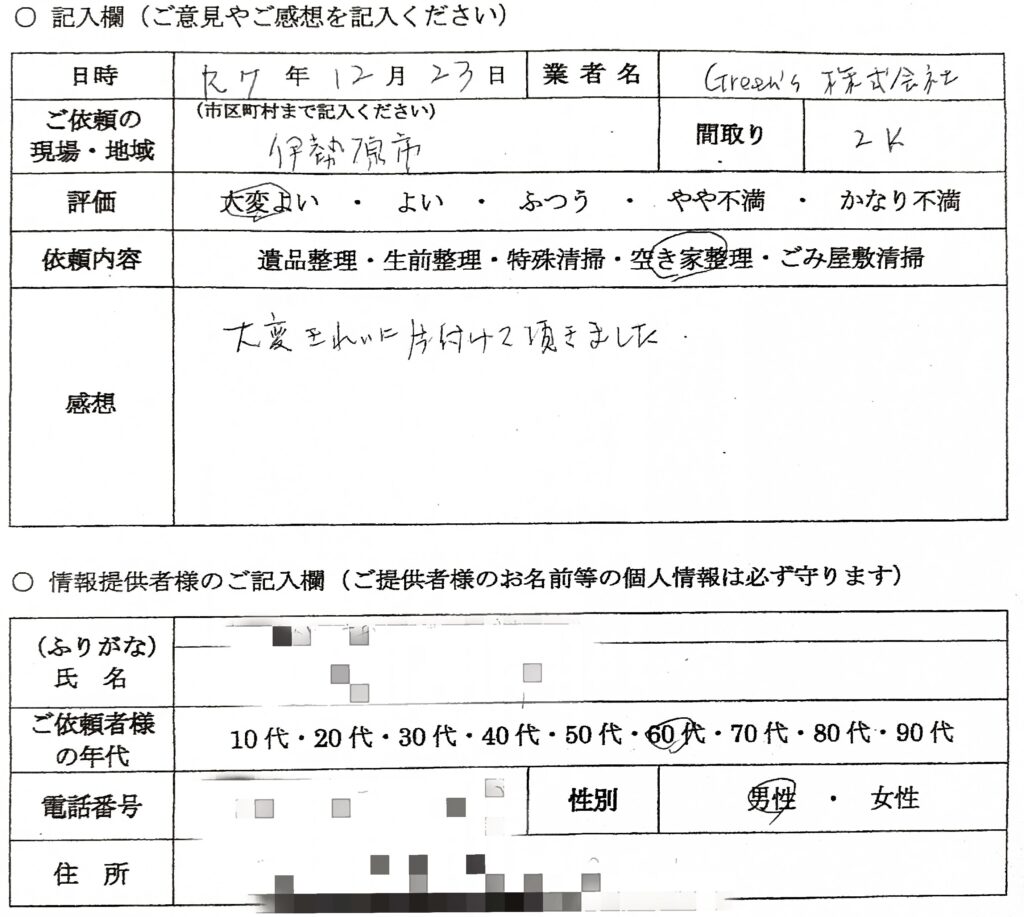 ○ 記入欄（ご意見やご感想を記入ください）
日時 R7 年 12 月 23 日 業者名 Green's 株式会社
ご依頼の現場・地域 （市区町村まで記入ください） 伊勢原市 間取り 2K
評価 大変よい ・ よい ・ ふつう ・ やや不満 ・ かなり不満
依頼内容 遺品整理・生前整理・特殊清掃・空き家整理・ごみ屋敷清掃
感想 大変きれいに片付けて頂きました.
○ 情報提供者様のご記入欄（ご提供者様のお名前等の個人情報は必ず守ります）
（ふりがな）
氏 名
ご依頼者様の年代 10代・20代・30代・40代・50代・60代・70代・80代・90代
電話番号 性別 男性 ・ 女性
住 所